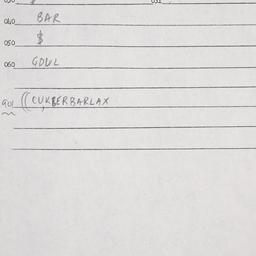 040 BAR
050 $
060 GDUL
901 ((CUKBERBARLAX